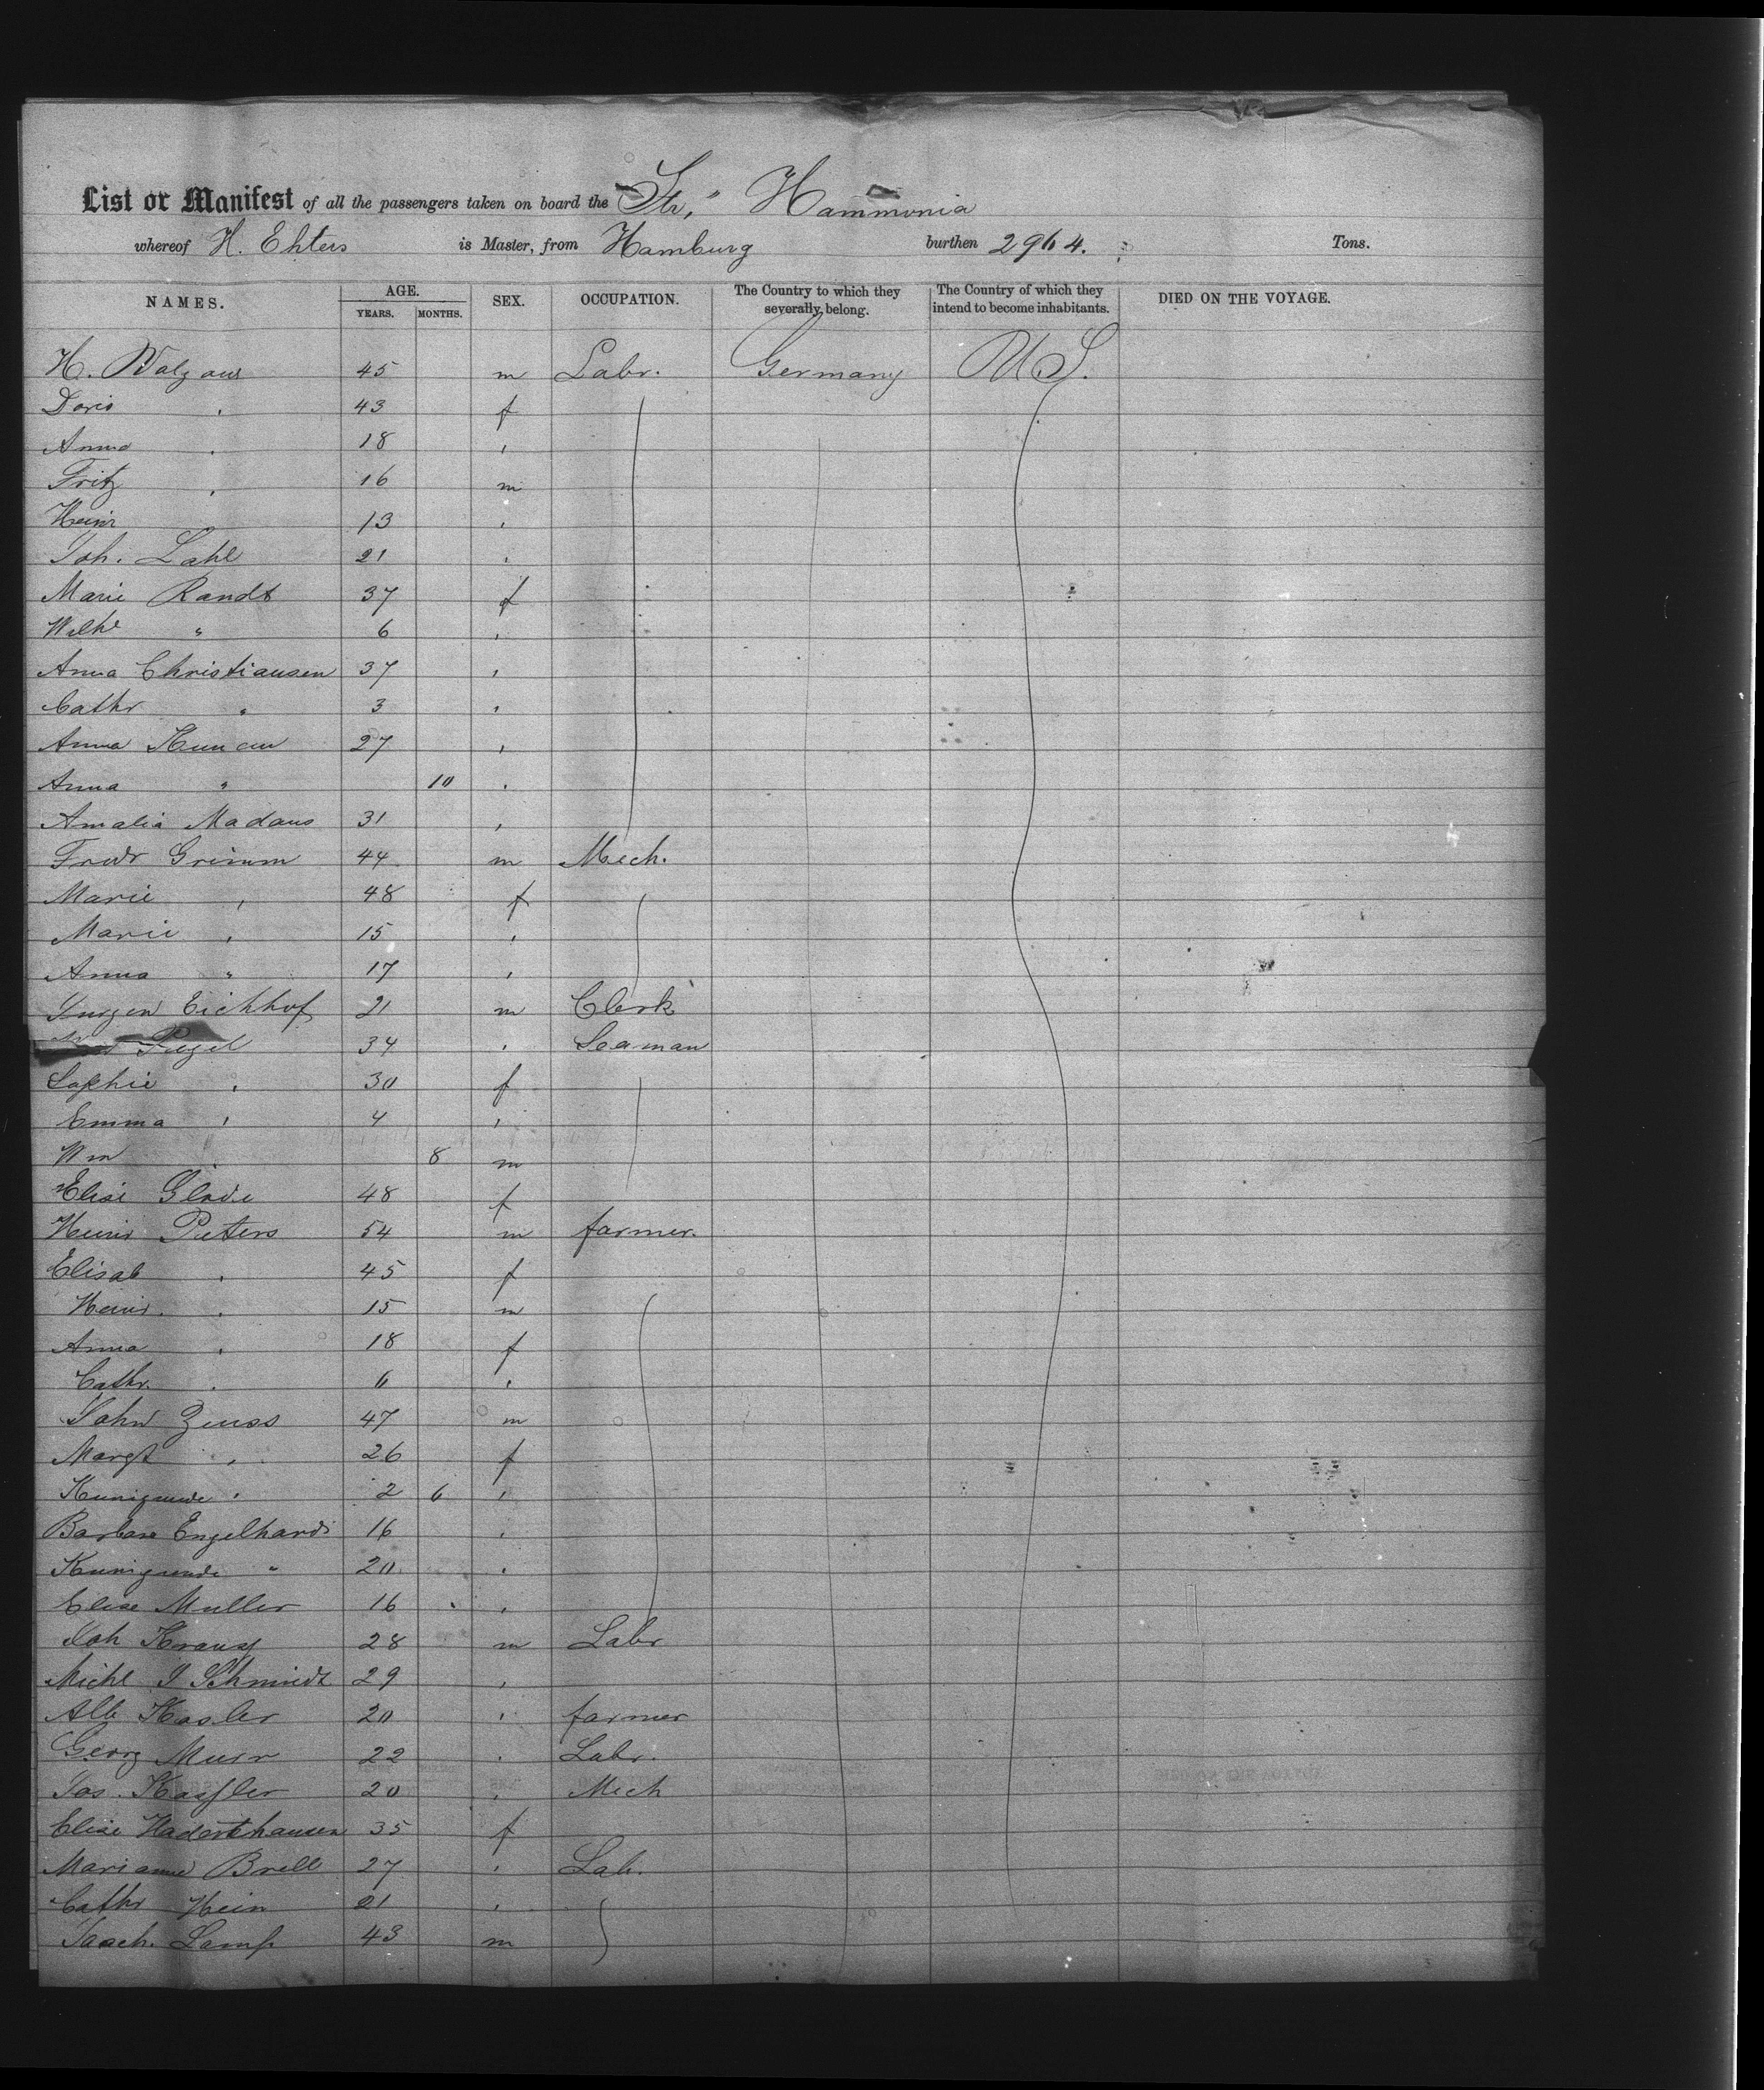 List or Manifest of all the passengers taken on board the Str. " Hammonia
whereof H. Ehlers is Master, from Hamburg burthen 2964. Tons.
NAMES. AGE. YEARS. MONTHS. SEX. OCCUPATION. The Country to which they severally belong. The Country of which they intend to become inhabitants. DIED ON THE VOYAGE.
H. 45 m Labr. Germany U S.
Doris 43 f
Anna 18 "
Fritz " 16 m
Heinr 13 "
Joh. Lahl 21 "
Marie Randt 37 f
Wilhe " 6 "
Anna Christiansen 37 "
Cathr " 3 "
Anna 27 "
Anna " 10 "
Amalia Madaus 31 "
Fredr Grimm 44 m Mech.
Marie " 48 f
Marie " 15 "
Anna " 17 "
Jurgen Eichhof 21 m Clerk
34 " Seaman
Sophie " 30 f
Emma " 4 "
Wm " 8 m
Elise Glode 48 f
Heinr Peters 54 m farmer.
Elisab " 45 f
Heinr. " 15 m
Anna " 18 f
Cathr. " 6 "
John Zeuss 47 m
Margt " 26 f
Kunigunde " 2 6 "
Barbara Engelhardt 16 "
Kunigunde " 20 "
Elise Muller 16 "
Joh Krauss 28 m Labr
Michl J Schmidt 29 "
Alb Hasler 20 " farmer
Georg Murr 22 " Labr.
Jos. Kassler 20 " Mech
Elise 35 f
Marianne Brell 27 " Lab.
Cathr Hein 21 "
Joach. Lamp 43 m